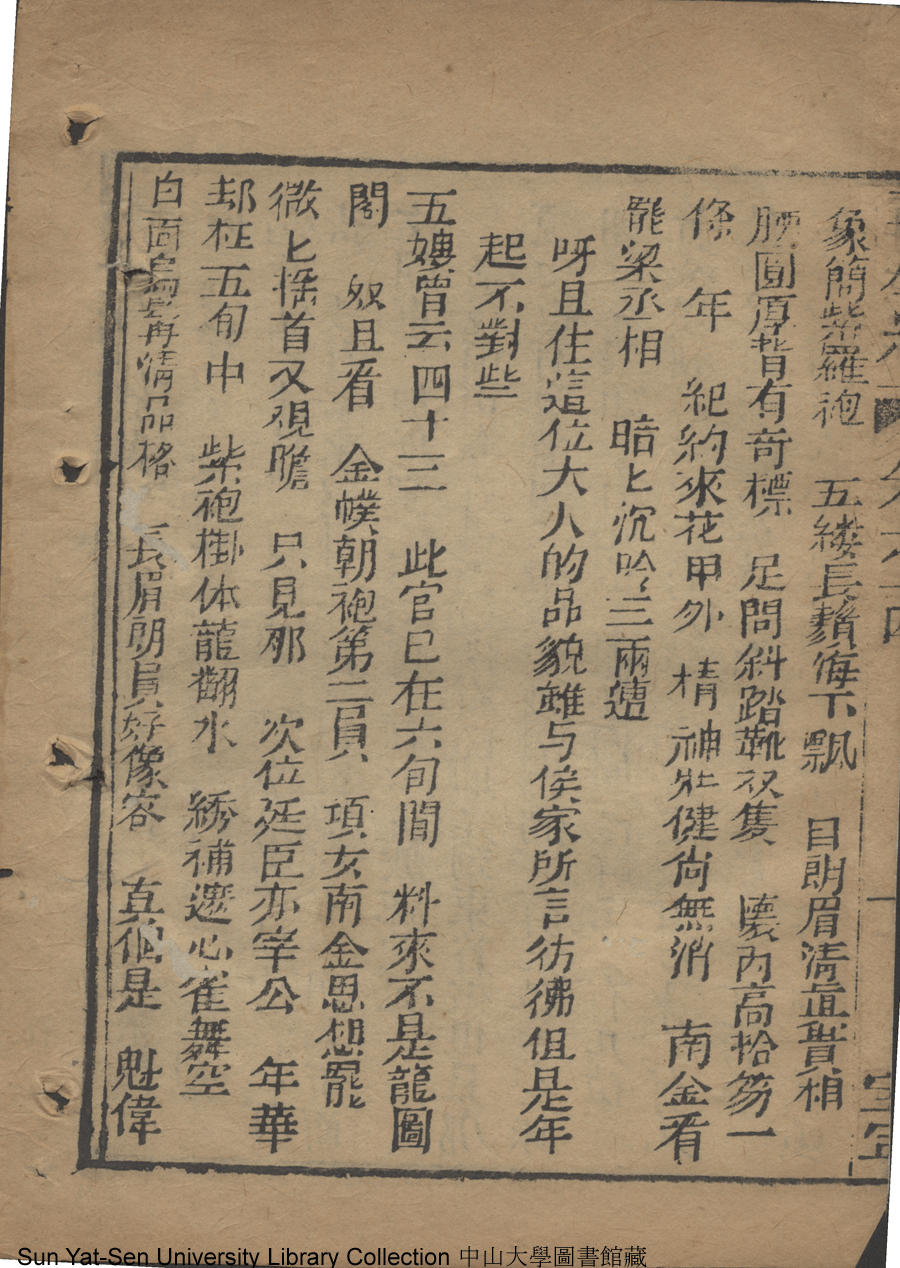 象簡紫羅袍　五縷長鬚海下飄　目朗眉清真貴相
腰圓厚背有奇標　足問斜踏靴双隻　懷內高拾笏一
條　年　紀約來花甲外　精神壯健尚無消　南金看
罷梁丞相　暗匕沉吟三兩遭
呀且住這位大人的品貌雖与侯家所言彷彿但是年
起不對些
五㜢曾云四十三　此官已在六旬間　料來不是龍圖
閣　奴且看　金幞朝袍第二員　項女南金思想罷
微匕搖首又覌瞻　只見那　次位廷臣亦宰公　年華
却在五旬中　紫袍掛体龍翻水　綉補遮心雀舞空
白面烏鬚再情品格　長眉朗目好像容　真個是　魁偉
Sun Yat-Sen University Library Collection 中山大學圖書館藏